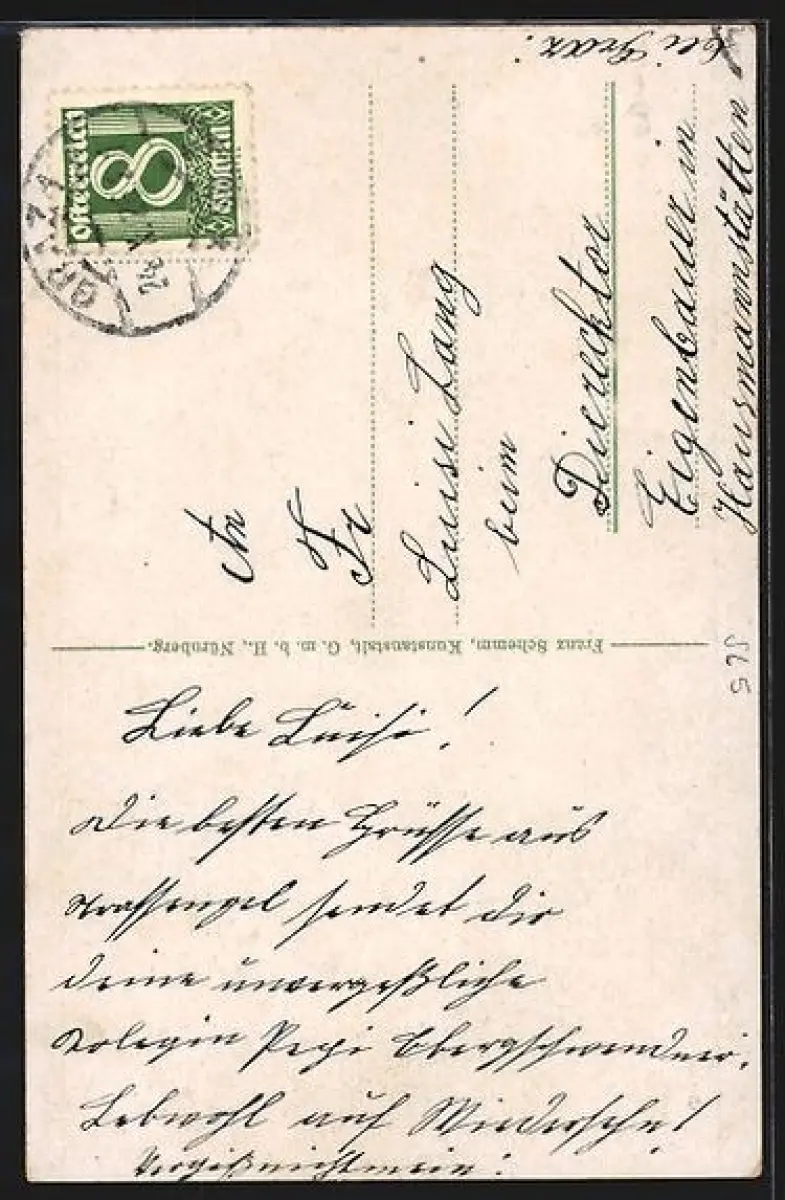 Österreich
8
Groschen
GRAZ 1
An
Fr
Luisi Lang
beim
Dierecktor
Eigenbauer in
Hausmannstätten
bei Graz.
Franz Schemm, Kunstanstalt, G. m. b. H., Nürnberg.
Liebe Luisi!
Die besten Grüsse aus
Strassengel sendet dir
deine unvergeßliche
Kolegin Pepi
Lebwohl auf Wiedersehn!
Vergißnichtmein!